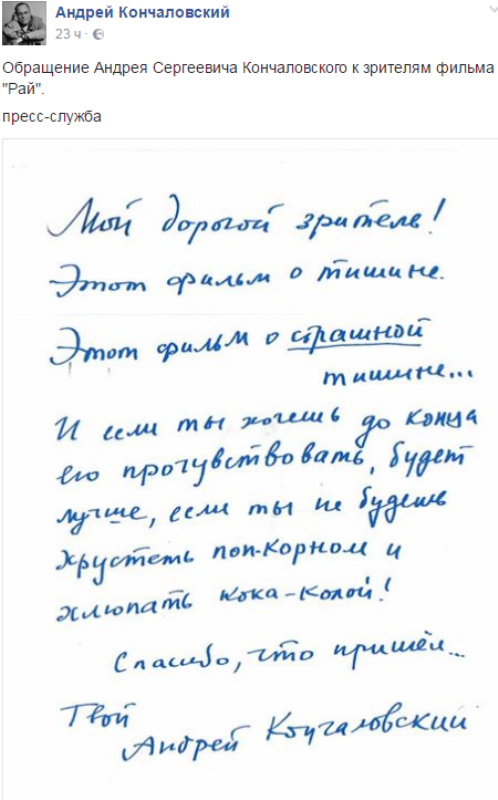 Андрей Кончаловский
23 ч ·
Обращение Андрея Сергеевича Кончаловского к зрителям фильма
"Рай".
пресс-служба
Мой дорогой зритель!
Этот фильм о тишине.
Этот фильм о страшной
тишине...
И если ты хочешь до конца
его прочувствовать, будет
лучше, если ты не будешь
хрустеть поп-корном и
хлюпать кока-колой!
Спасибо, что пришёл...
Твой
Андрей Кончаловский